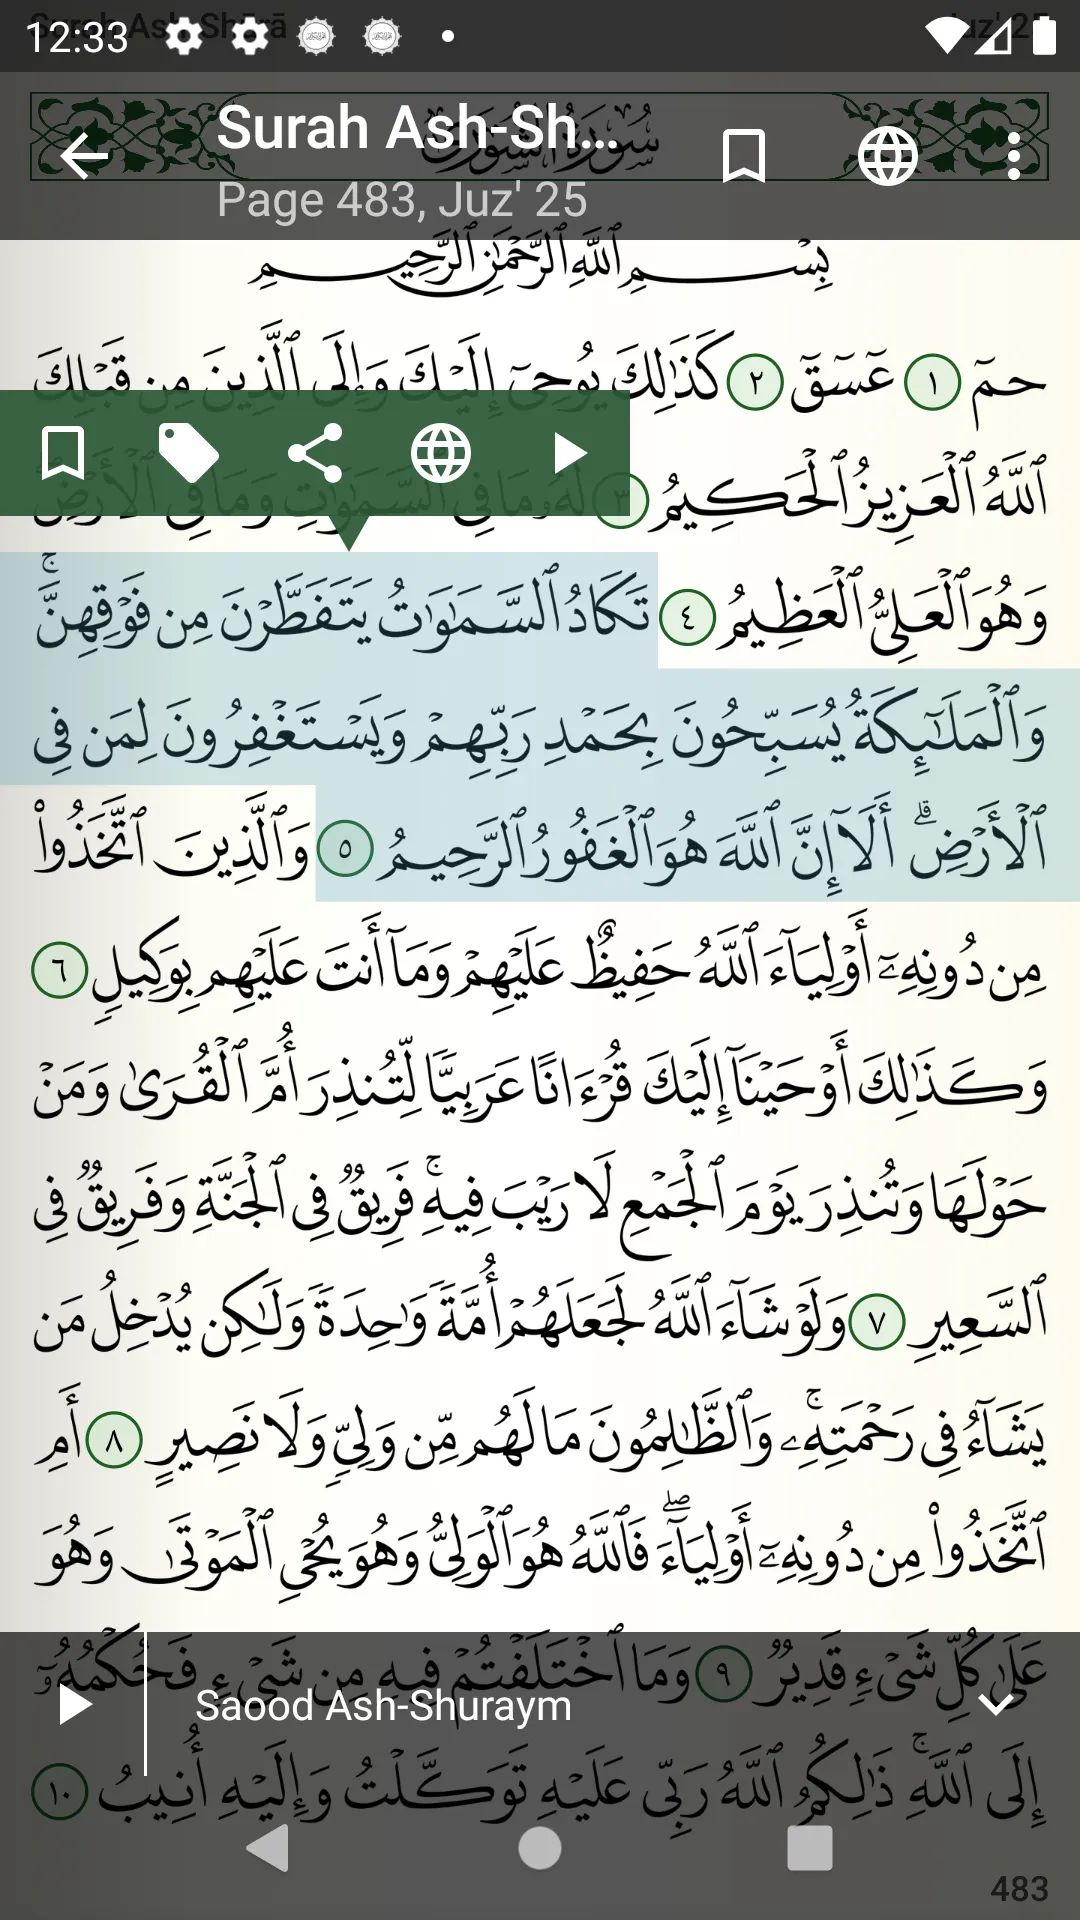 12:33
Surah Ash-Shūrā
Juz' 25
سُورَةُ الشُّورَىٰ
Surah Ash-Sh...
Page 483, Juz' 25
بِسْمِ ٱللَّهِ ٱلرَّحْمَٰنِ ٱلرَّحِيمِ
حمٓ ١ عٓسٓقٓ ٢ كَذَٰلِكَ يُوحِىٓ إِلَيْكَ وَإِلَى ٱلَّذِينَ مِن قَبْلِكَ
ٱللَّهُ ٱلْعَزِيزُ ٱلْحَكِيمُ ٣ لَهُۥ مَا فِى ٱلسَّمَٰوَٰتِ وَمَا فِى ٱلْأَرْضِ
وَهُوَ ٱلْعَلِىُّ ٱلْعَظِيمُ ٤ تَكَادُ ٱلسَّمَٰوَٰتُ يَتَفَطَّرْنَ مِن فَوْقِهِنَّ ۚ
وَٱلْمَلَٰٓئِكَةُ يُسَبِّحُونَ بِحَمْدِ رَبِّهِمْ وَيَسْتَغْفِرُونَ لِمَن فِى
ٱلْأَرْضِ ۗ أَلَآ إِنَّ ٱللَّهَ هُوَ ٱلْغَفُورُ ٱلرَّحِيمُ ٥ وَٱلَّذِينَ ٱتَّخَذُوا۟
مِن دُونِهِۦٓ أَوْلِيَآءَ ٱللَّهُ حَفِيظٌ عَلَيْهِمْ وَمَآ أَنتَ عَلَيْهِم بِوَكِيلٍ ٦
وَكَذَٰلِكَ أَوْحَيْنَآ إِلَيْكَ قُرْءَانًا عَرَبِيًّا لِّتُنذِرَ أُمَّ ٱلْقُرَىٰ وَمَنْ
حَوْلَهَا وَتُنذِرَ يَوْمَ ٱلْجَمْعِ لَا رَيْبَ فِيهِ ۚ فَرِيقٌ فِى ٱلْجَنَّةِ وَفَرِيقٌ فِى
ٱلسَّعِيرِ ٧ وَلَوْ شَآءَ ٱللَّهُ لَجَعَلَهُمْ أُمَّةً وَٰحِدَةً وَلَٰكِن يُدْخِلُ مَن
يَشَآءُ فِى رَحْمَتِهِۦ ۚ وَٱلظَّٰلِمُونَ مَا لَهُم مِّن وَلِىٍّ وَلَا نَصِيرٍ ٨ أَمِ
ٱتَّخَذُوا۟ مِن دُونِهِۦٓ أَوْلِيَآءَ ۖ فَٱللَّهُ هُوَ ٱلْوَلِىُّ وَهُوَ يُحْىِ ٱلْمَوْتَىٰ وَهُوَ
عَلَىٰ كُلِّ شَىْءٍ قَدِيرٌ ٩ وَمَا ٱخْتَلَفْتُمْ فِيهِ مِن شَىْءٍ فَحُكْمُهُۥٓ
Saood Ash-Shuraym
إِلَى ٱللَّهِ ۚ ذَٰلِكُمُ ٱللَّهُ رَبِّى عَلَيْهِ تَوَكَّلْتُ وَإِلَيْهِ أُنِيبُ ١٠
483